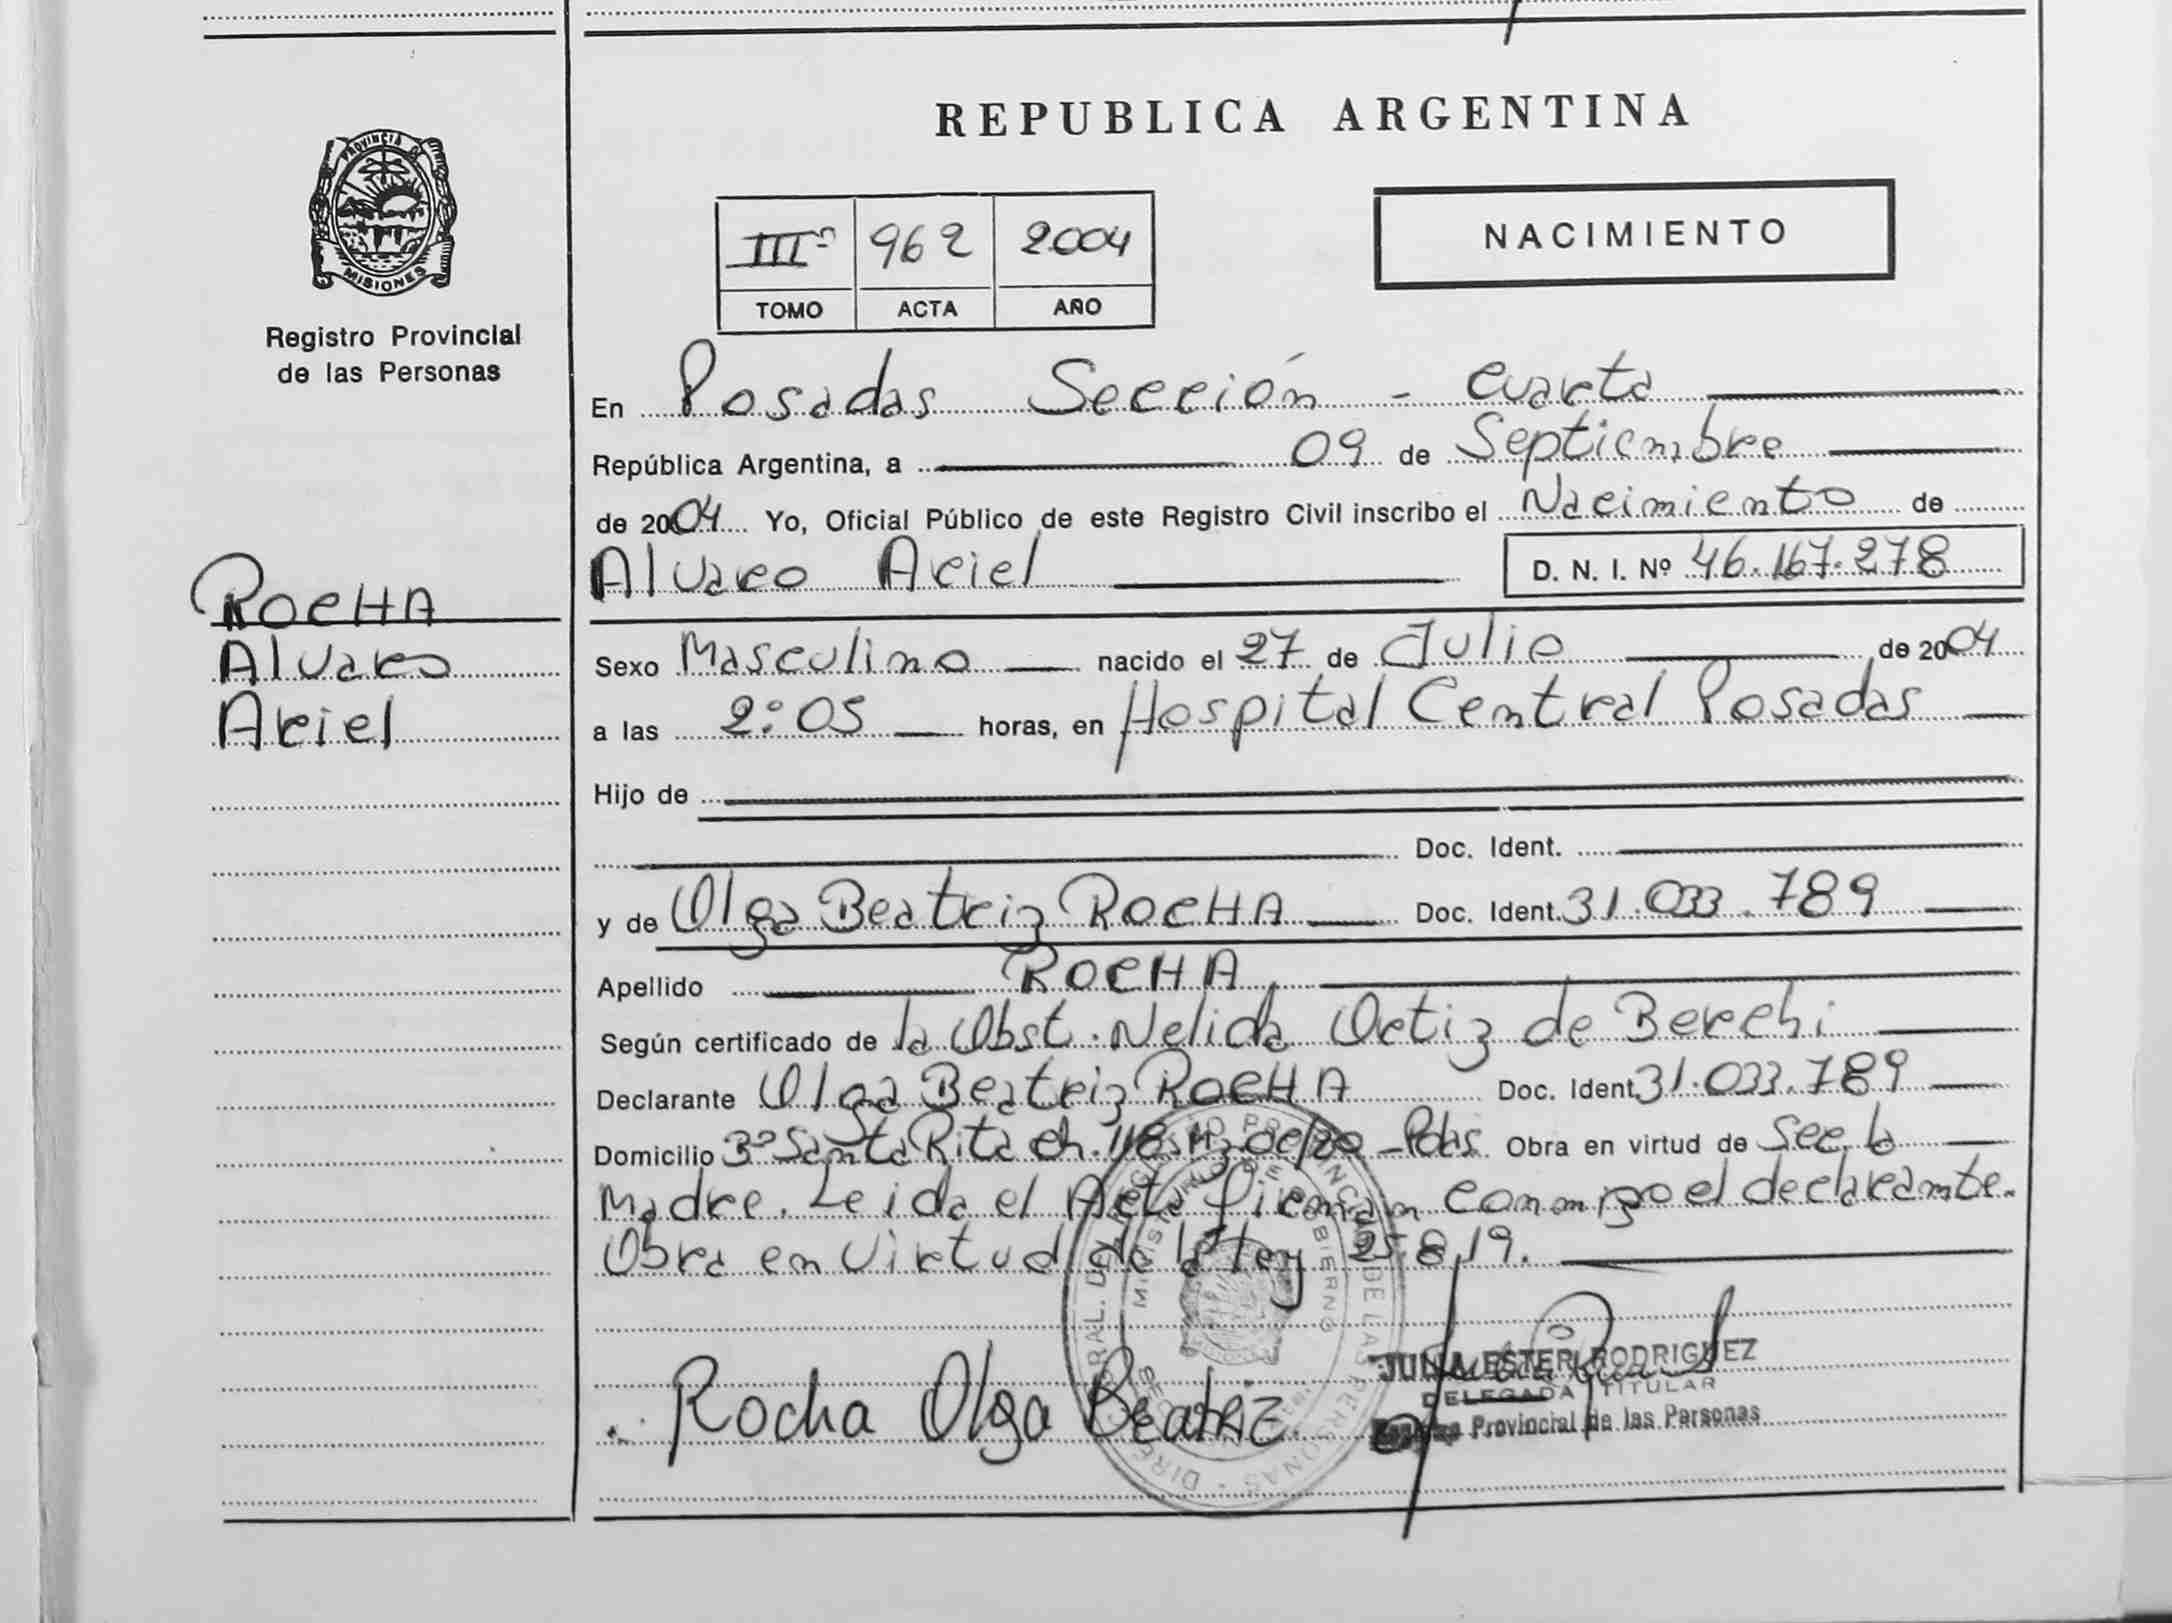 REPUBLICA ARGENTINA
PROVINCIA DE
MISIONES
Registro Provincial
de las Personas
IIIº 962 2004
TOMO ACTA AÑO
NACIMIENTO
En Posadas Sección - Cuarta
República Argentina, a 09 de Septiembre
de 2004 Yo, Oficial Público de este Registro Civil inscribo el Nacimiento de
Alvaro Ariel D. N. I. Nº 46.167.278
ROCHA
Alvaro
Ariel
Sexo Masculino nacido el 27 de Julio de 2004
a las 2:05 horas, en Hospital Central Posadas
Hijo de
Doc. Ident.
y de Olga Beatriz ROCHA Doc. Ident. 31.033.789
Apellido ROCHA
Según certificado de la Obst. Nelida Ortiz de Berchi
Declarante Olga Beatriz ROCHA Doc. Ident. 31.033.789
Domicilio Bº Santa Rita Ch. 118 Mz - Pdas. Obra en virtud de ser la
Madre. Leida el Acta firman conmigo el declarante.
Obra en virtud de la ley 25.819.
Rocha Olga Beatriz.
JULIA ESTER RODRIGUEZ
DELEGADA TITULAR
Registro Provincial de las Personas
MINISTERIO DE GOBIERNO
REGISTRO PROVINCIAL DE LAS PERSONAS